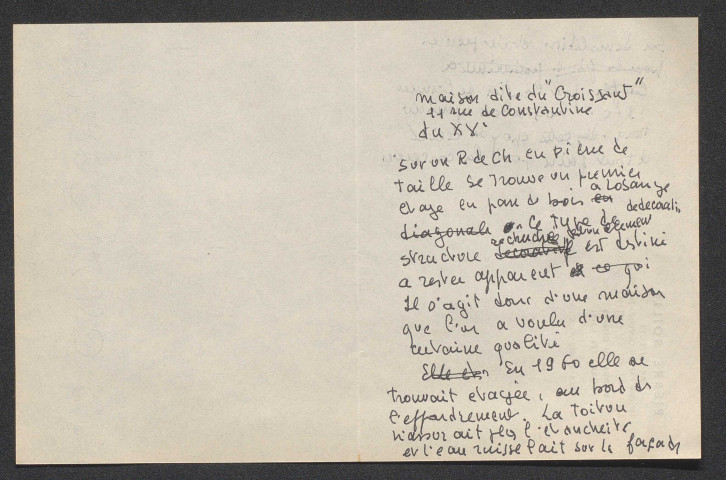 maison dite du "Croissant"
11 rue de Constantine
du XV°
sur un R de Ch en pierre de
taille se trouve un premier
etage en pan de bois en a Losange
diagonale de decoration
Ce type de
structure decorative recherchée element est destiné
a rester apparent et ce qui
Il s'agit donc d'une maison
que l'on a voulu d'une
certaine qualité
Elle et En 1960 elle se
trouvait etayée, au bord de
l'effondrement. La toiture
n'assurait plus l'etancheité
et l'eau ruisselait sur la façade